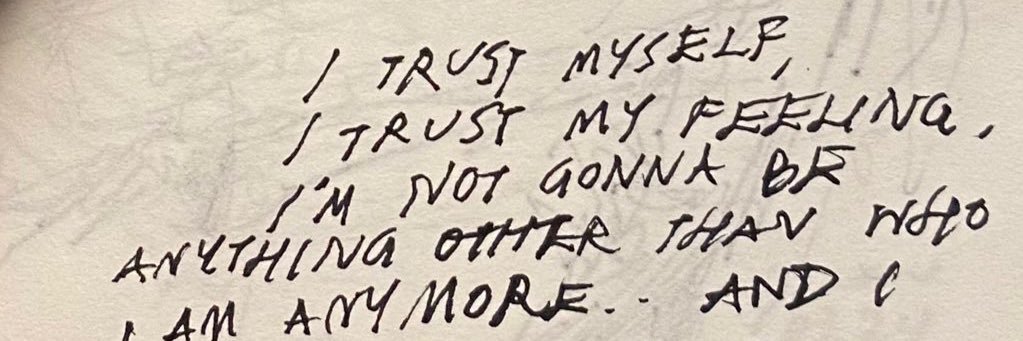 I TRUST MYSELF,
I TRUST MY FEELING,
I'M NOT GONNA BE
ANYTHING OTHER THAN WHO
I AM ANYMORE.. AND